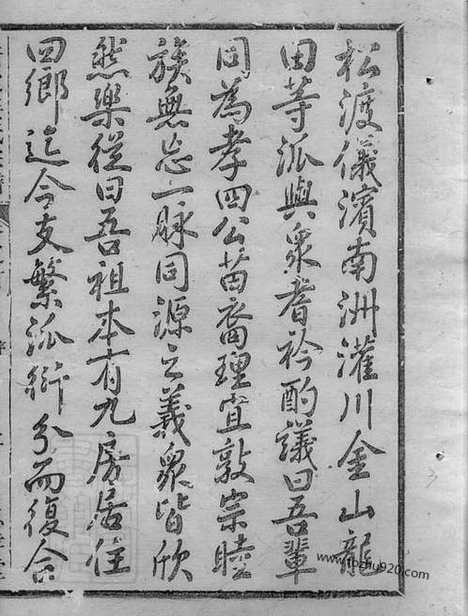 松渡儀濱南洲灌川金山龍
田等派與衆耆衿酌議曰吾輩
同為孝四公苗裔理宜敦宗睦
族無忘一脉同源之義衆皆欣
然樂從曰吾祖本有九房居住
四鄉迄今支繁派衍分而復合
www.jiapu920.com